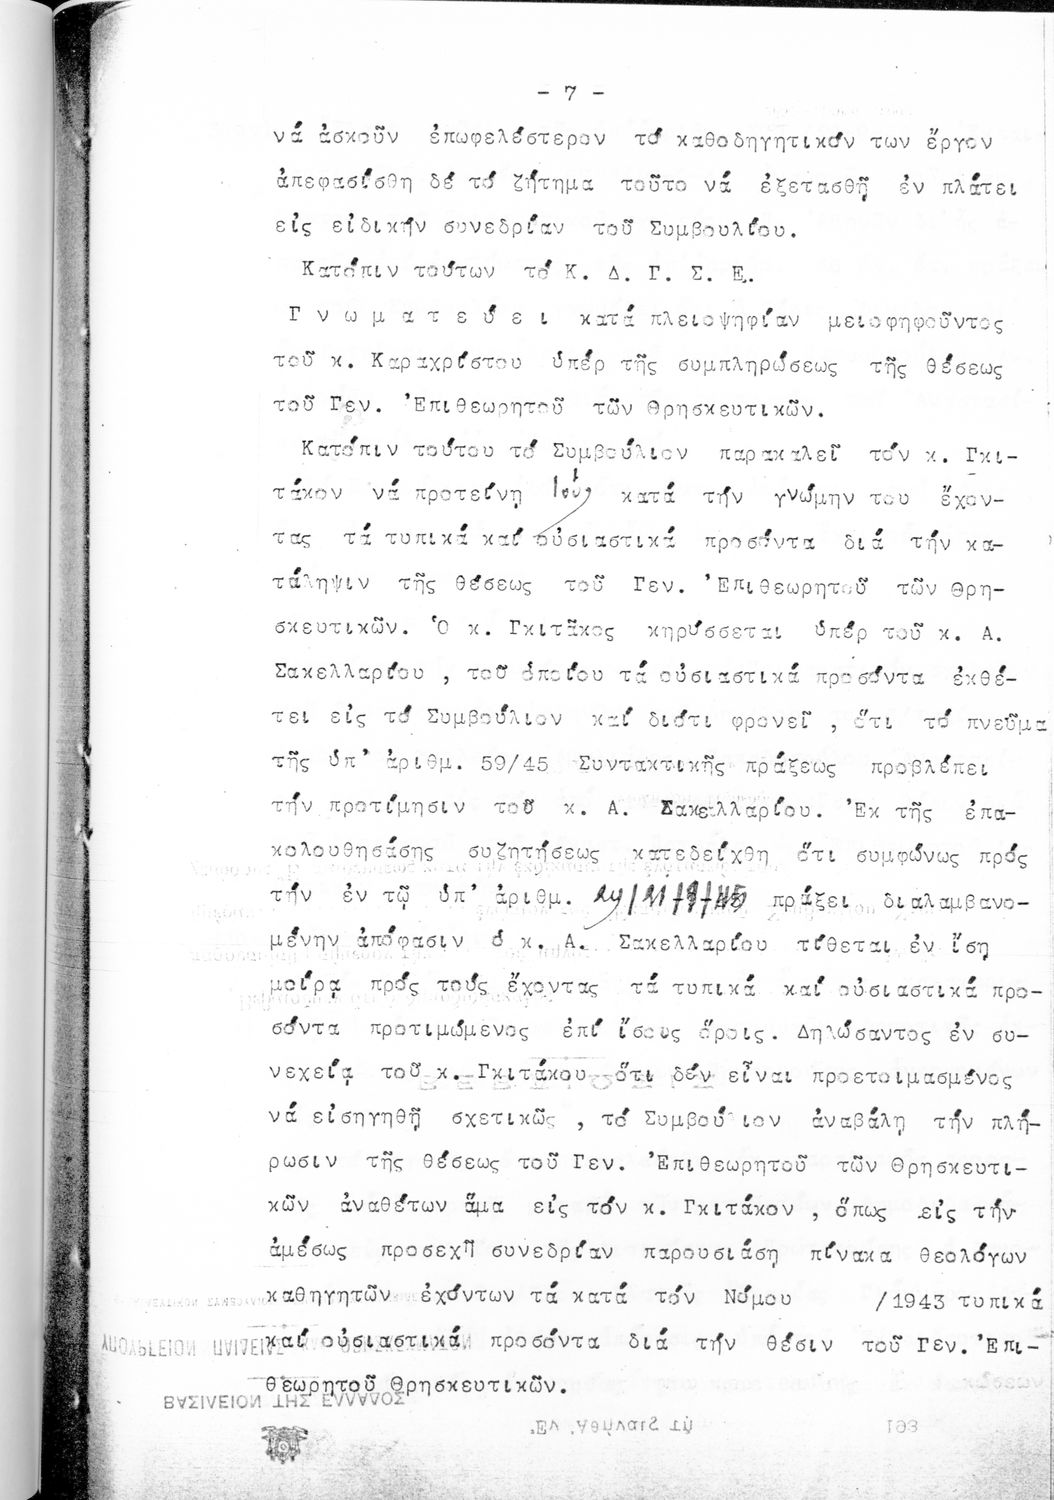 - 7 -
νά ἀσκοῦν ἐπωφελέστερον τό καθοδηγητικόν των ἔργον
ἀπεφασίσθη δέ τό ζήτημα τοῦτο νά ἐξετασθῇ ἐν πλάτει
εἰς εἰδικήν συνεδρίαν τοῦ Συμβουλίου.
Κατόπιν τούτων τό Κ. Δ. Γ. Σ. Ε.
Γ ν ω μ α τ ε ύ ε ι κατά πλειοψηφίαν μειοφηφοῦντος
τοῦ κ. Καραχρίστου ὑπέρ τῆς συμπληρώσεως τῆς θέσεως
τοῦ Γεν. Ἐπιθεωρητοῦ τῶν Θρησκευτικῶν.
Κατόπιν τούτου τό Συμβούλιον παρακαλεῖ τόν κ. Γκι-
τάκον νά προτείνῃ κατά τήν γνώμην του ἔχον-
τας τά τυπικά καί οὐσιαστικά προσόντα διά τήν κα-
τάληψιν τῆς θέσεως τοῦ Γεν. Ἐπιθεωρητοῦ τῶν Θρη-
σκευτικῶν. Ὁ κ. Γκιτᾶκος κηρύσσεται ὑπέρ τοῦ κ. Α.
Σακελλαρίου , τοῦ ὁποίου τά οὐσιαστικά προσόντα ἐκθέ-
τει εἰς τό Συμβούλιον καί διότι φρονεῖ , ὅτι τό πνεῦμα
τῆς ὑπ' ἀριθμ. 59/45 Συντακτικῆς πράξεως προβλέπει
τήν προτίμησιν τοῦ κ. Α. Σακελλαρίου. Ἐκ τῆς ἐπα-
κολουθησάσης συζητήσεως κατεδείχθη ὅτι συμφώνως πρός
τήν ἐν τῷ ὑπ' ἀριθμ. πράξει διαλαμβανο-
μένην ἀπόφασιν ὁ κ. Α. Σακελλαρίου τίθεται ἐν ἴσῃ
μοίρᾳ πρός τούς ἔχοντας τά τυπικά καί οὐσιαστικά προ-
σόντα προτιμώμενος ἐπί ἴσους ὅροις. Δηλώσαντος ἐν συ-
νεχείᾳ τοῦ κ. Γκιτάκου ὅτι δέν εἶναι προετοιμασμένος
νά εἰσηγηθῇ σχετικῶς , τό Συμβούλιον ἀναβάλη τήν πλή-
ρωσιν τῆς θέσεως τοῦ Γεν. Ἐπιθεωρητοῦ τῶν Θρησκευτι-
κῶν ἀναθέτων ἅμα εἰς τόν κ. Γκιτάκον , ὅπως εἰς τήν
ἀμέσως προσεχῆ συνεδρίαν παρουσιάσῃ πίνακα θεολόγων
καθηγητῶν ἐχόντων τά κατά τόν Νόμου /1943 τυπικά
καί οὐσιαστικά προσόντα διά τήν θέσιν τοῦ Γεν. Ἐπι-
θεωρητοῦ Θρησκευτικῶν.
ΥΠΟΥΡΓΕΙΟΝ ΠΑΙΔΕΙΑΣ
ΒΑΣΙΛΕΙΟΝ ΤΗΣ ΕΛΛΑΔΟΣ